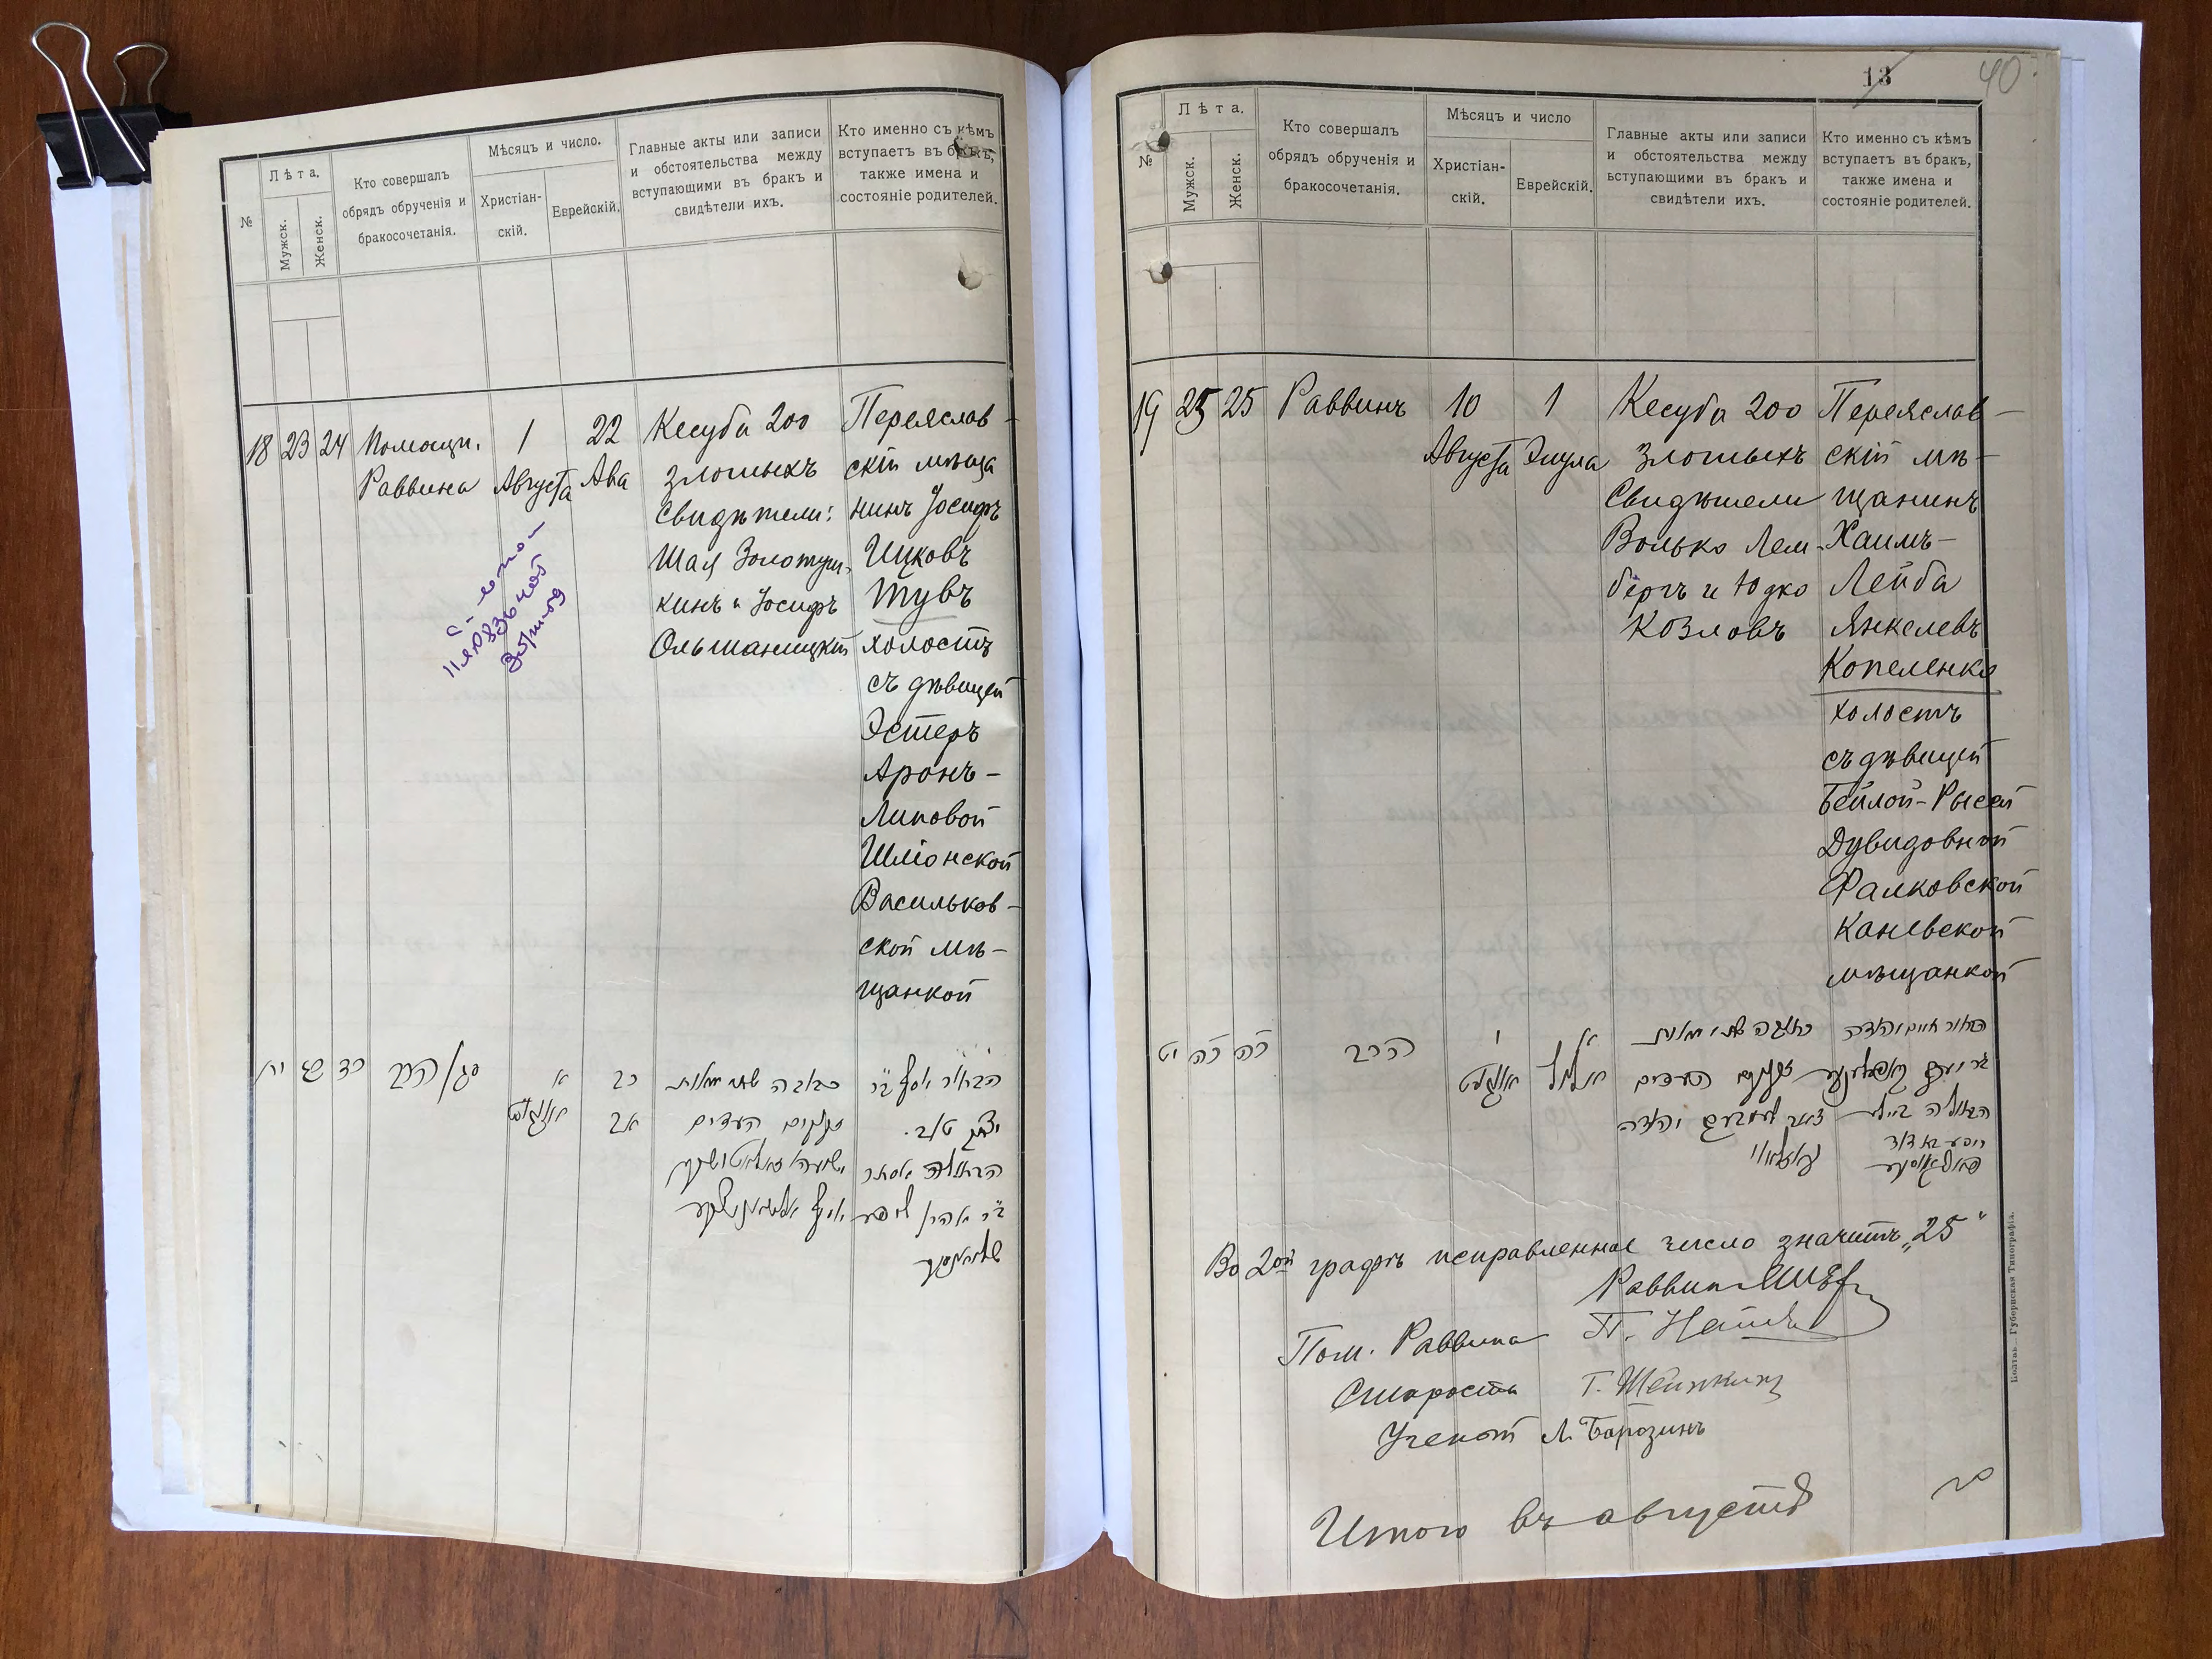 №
Лѣта.
Мужск.
Женск.
Кто совершалъ
обрядъ обрученія и
бракосочетанія.
Мѣсяцъ и число.
Христіан-
скій.
Еврейскій.
Главные акты или записи
и обстоятельства между
вступающими въ бракъ и
свидѣтели ихъ.
Кто именно съ кѣмъ
вступаетъ въ бракъ,
также имена и
состояніе родителей.
18
23
24
Помощн.
Раввина
1
Августа
22
Ава
Кесуба 200
злотыхъ
Свидѣтели:
Шая Золотуш-
кинъ и Іосифъ
Ольшаницкій
Переяслав-
скій мѣща
нинъ Іосифъ
Ицковъ
Тувъ
холостъ
съ дѣвицей
Эстеръ
Аронъ-
Липовой
Шліонской
Васильков-
ской мѣ-
щанкой
יח
כד
סגן הרב
א
אווגוסט
כב
אב
כתובה שתי מאות
זקוקים העדים
הבחור יוסף ב״ר
יצחק טוב.
הבתולה אסתר
ב״ר אהרן ליפע
13
40
№
Лѣта.
Мужск.
Женск.
Кто совершалъ
обрядъ обрученія и
бракосочетанія.
Мѣсяцъ и число
Христіан-
скій.
Еврейскій.
Главные акты или записи
и обстоятельства между
вступающими въ бракъ и
свидѣтели ихъ.
Кто именно съ кѣмъ
вступаетъ въ бракъ,
также имена и
состояніе родителей.
19
25
25
Раввинъ
10
Августа
1
Элула
Кесуба 200
злотыхъ
Свидѣтели
Волько Лем-
бергъ и Юдко
Козловъ
Переяслав-
скій мѣ-
щанинъ
Хаимъ-
Лейба
Янкелевъ
Копеленко
холостъ
съ дѣвицей
Бейлой-Рысей
Дувидовной
Фалковской
Каневской
мѣщанкой
יט
כה
כה
הרב
י
אווגוסט
א
אלול
כתובה שתי מאות
זקוקים העדים
הבתולה ביילע
Во 2ой графѣ исправленное число значитъ „25“
Раввинъ
Пом. Раввина
Староста Г. Шейнкинъ
Ученый Л. Барозинъ
Итого въ августѣ 2
Полтав. Губернская Типографія.